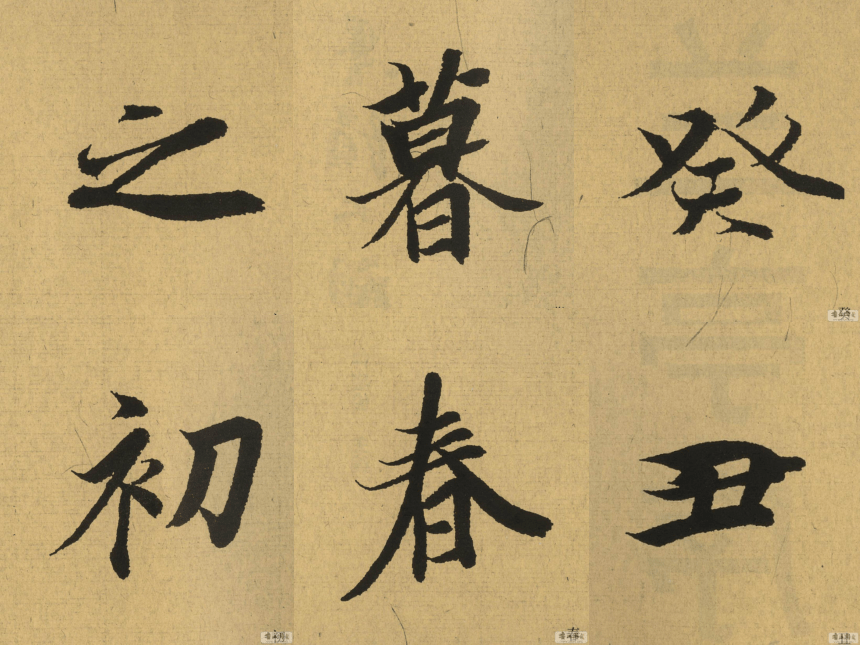 癸丑
暮春
之初